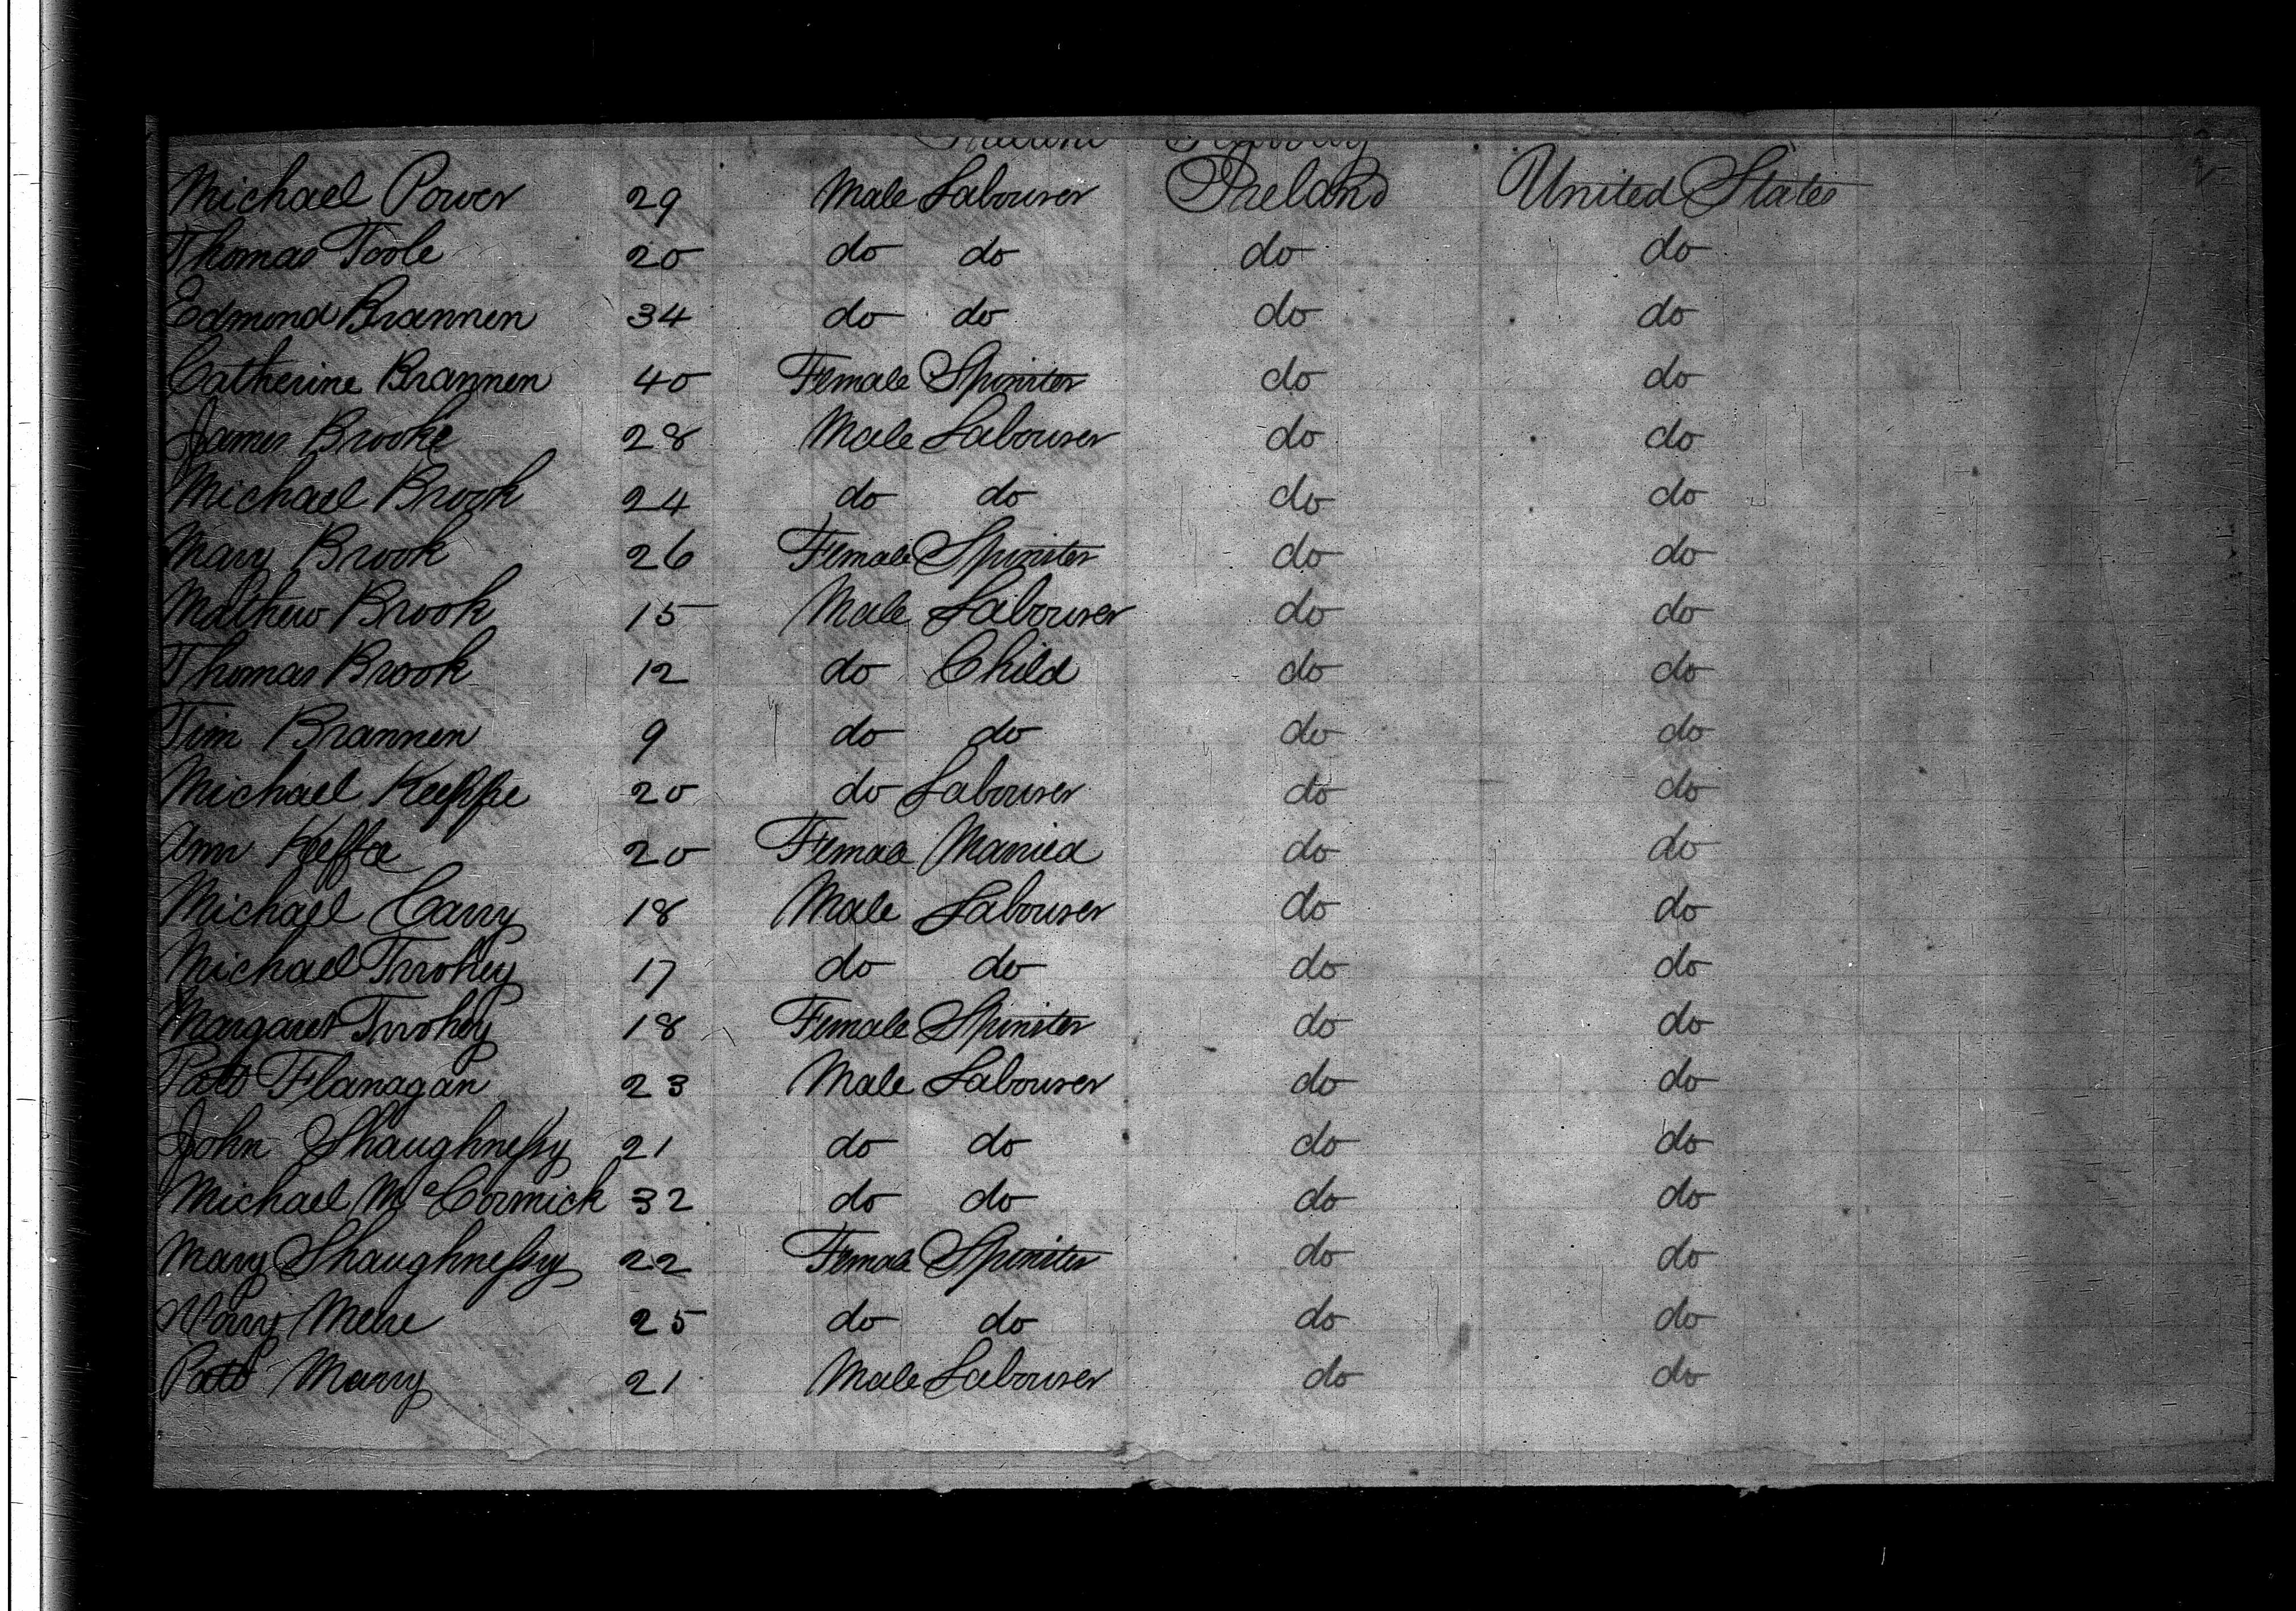 Michael Power 29 Male Labourer Ireland United States
Thomas Toole 20 do do do do
Edmond Brannen 34 do do do do
Catherine Brannen 40 Female Spinster do do
James Brooke 28 Male Labourer do do
Michael Brook 24 do do do do
Mary Brook 26 Female Spinster do do
Mathew Brook 15 Male Labourer do do
Thomas Brook 12 do Child do do
Tim Brannen 9 do do do do
Michael Keeffe 20 do Labourer do do
Ann Keeffe 20 Female Married do do
Michael Carry 18 Male Labourer do do
Michael 17 do do do do
Margaret 18 Female Spinster do do
Patt Flanagan 23 Male Labourer do do
John Shaughnessy 21 do do do do
Michael McCormick 32 do do do do
Mary Shaughnessy 22 Female Spinster do do
Mary 25 do do do do
Patt Marry 21 Male Labourer do do